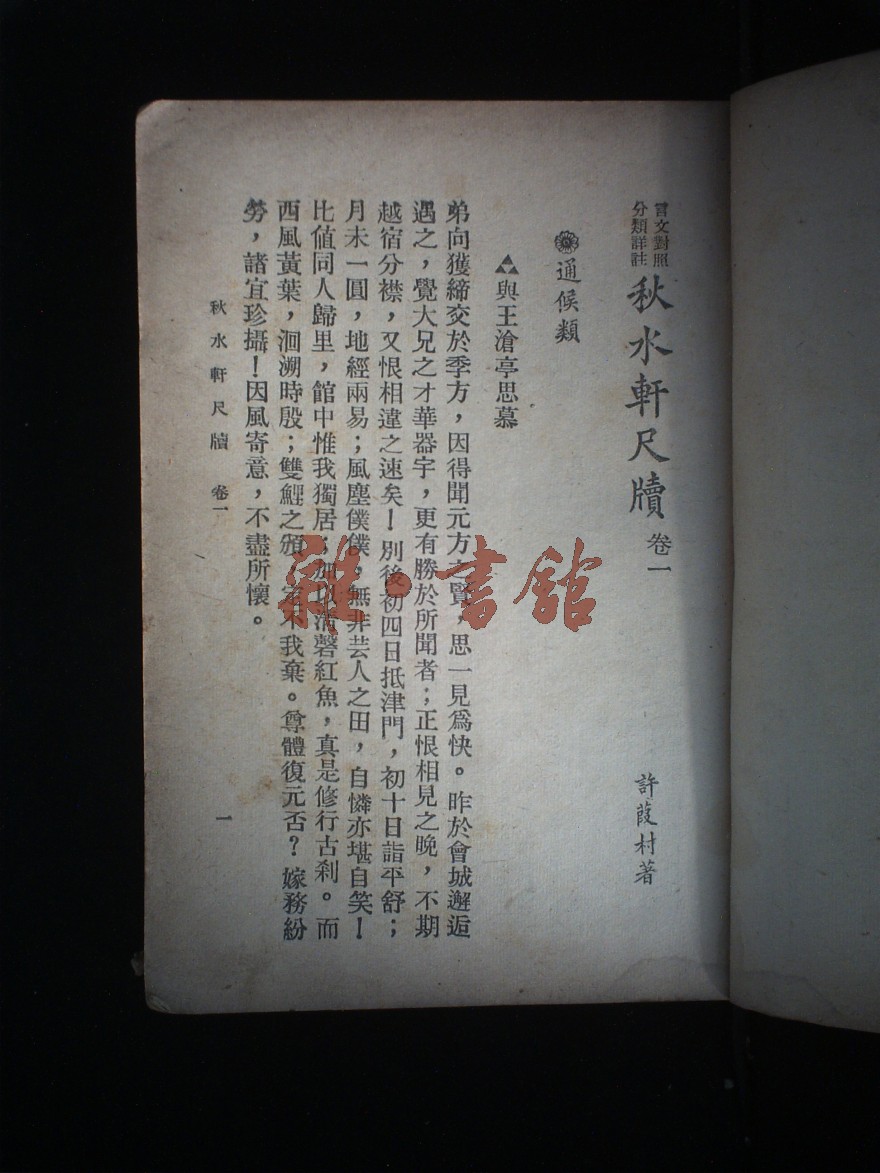 言文對照
分類詳註
秋水軒尺牘 卷一
許葭村著
通候類
與王滄亭思慕
弟向獲締交於季方,因得聞元方之賢,思一見爲快。昨於會城邂逅
遇之,覺大兄之才華器宇,更有勝於所聞者;正恨相見之晚,不期
越宿分襟,又恨相違之速矣!別後初四日抵津門,初十日詣平舒;
月未一圓,地經兩易;風塵僕僕,無非芸人之田,自憐亦堪自笑!
比値同人歸里,館中惟我獨居;加以清磬紅魚,真是修行古刹。而
西風黃葉,洄溯時殷;雙鯉之頒,定不我棄。尊體復元否?嫁務紛
勞,諸宜珍攝!因風寄意,不盡所懷。
秋水軒尺牘 卷一
一
雜·書館